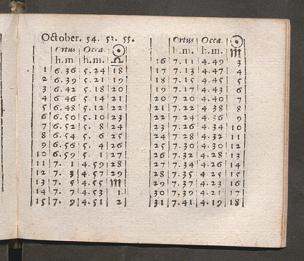 October. 54. 53. 55.
Ortus Occa. ☉
h. m h. m. ♎
1 6.36 5.24 18
2 6.39 5.21 19
3 6.42 5.18 20
4 6.46 5.14 21
5 6.48 5.12 22
6 6.50 5.10 23
7 6.52 5.8 24
8 6.54 5.6 25
9 6.56 5.4 26
10 6.59 5.1 27
11 7.1 4.59 28
12 7.3 4.57 29
13 7.5 4.55 ♏
14 7.7 4.53 1
15 7.9 4.51 2
Ortus Occa. ☉
h. m. h. m. ♏
16 7.11 4.49 3
17 7.13 4.47 4
18 7.15 4.45 5
19 7.17 4.43 6
20 7.20 4.40 7
21 7.22 4.38 8
22 7.24 4.36 9
23 7.26 4.34 10
24 7.28 4.32 11
25 7.30 4.30 12
26 7.32 4.28 13
27 7.34 4.26 14
28 7.35 4.25 15
29 7.37 4.23 16
30 7.39 4.21 17
31 7.41 4.19 18